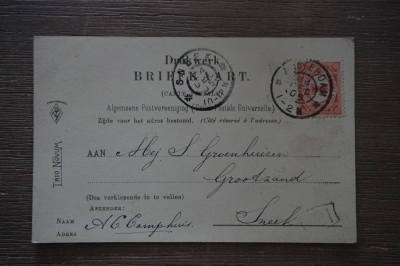 Drukwerk
BRIEFKAART.
Algemeene Postvereeniging (Union Postale Universelle)
Zijde voor het adres bestemd. (Côté réservé à l'adresse.)
AAN Mej S. Groenhuizen
Grootzand
(Des verkiezende in te vullen)
AFZENDER:
Sneek
NAAM A C Camphuis.
ADRES
AMSTERDAM